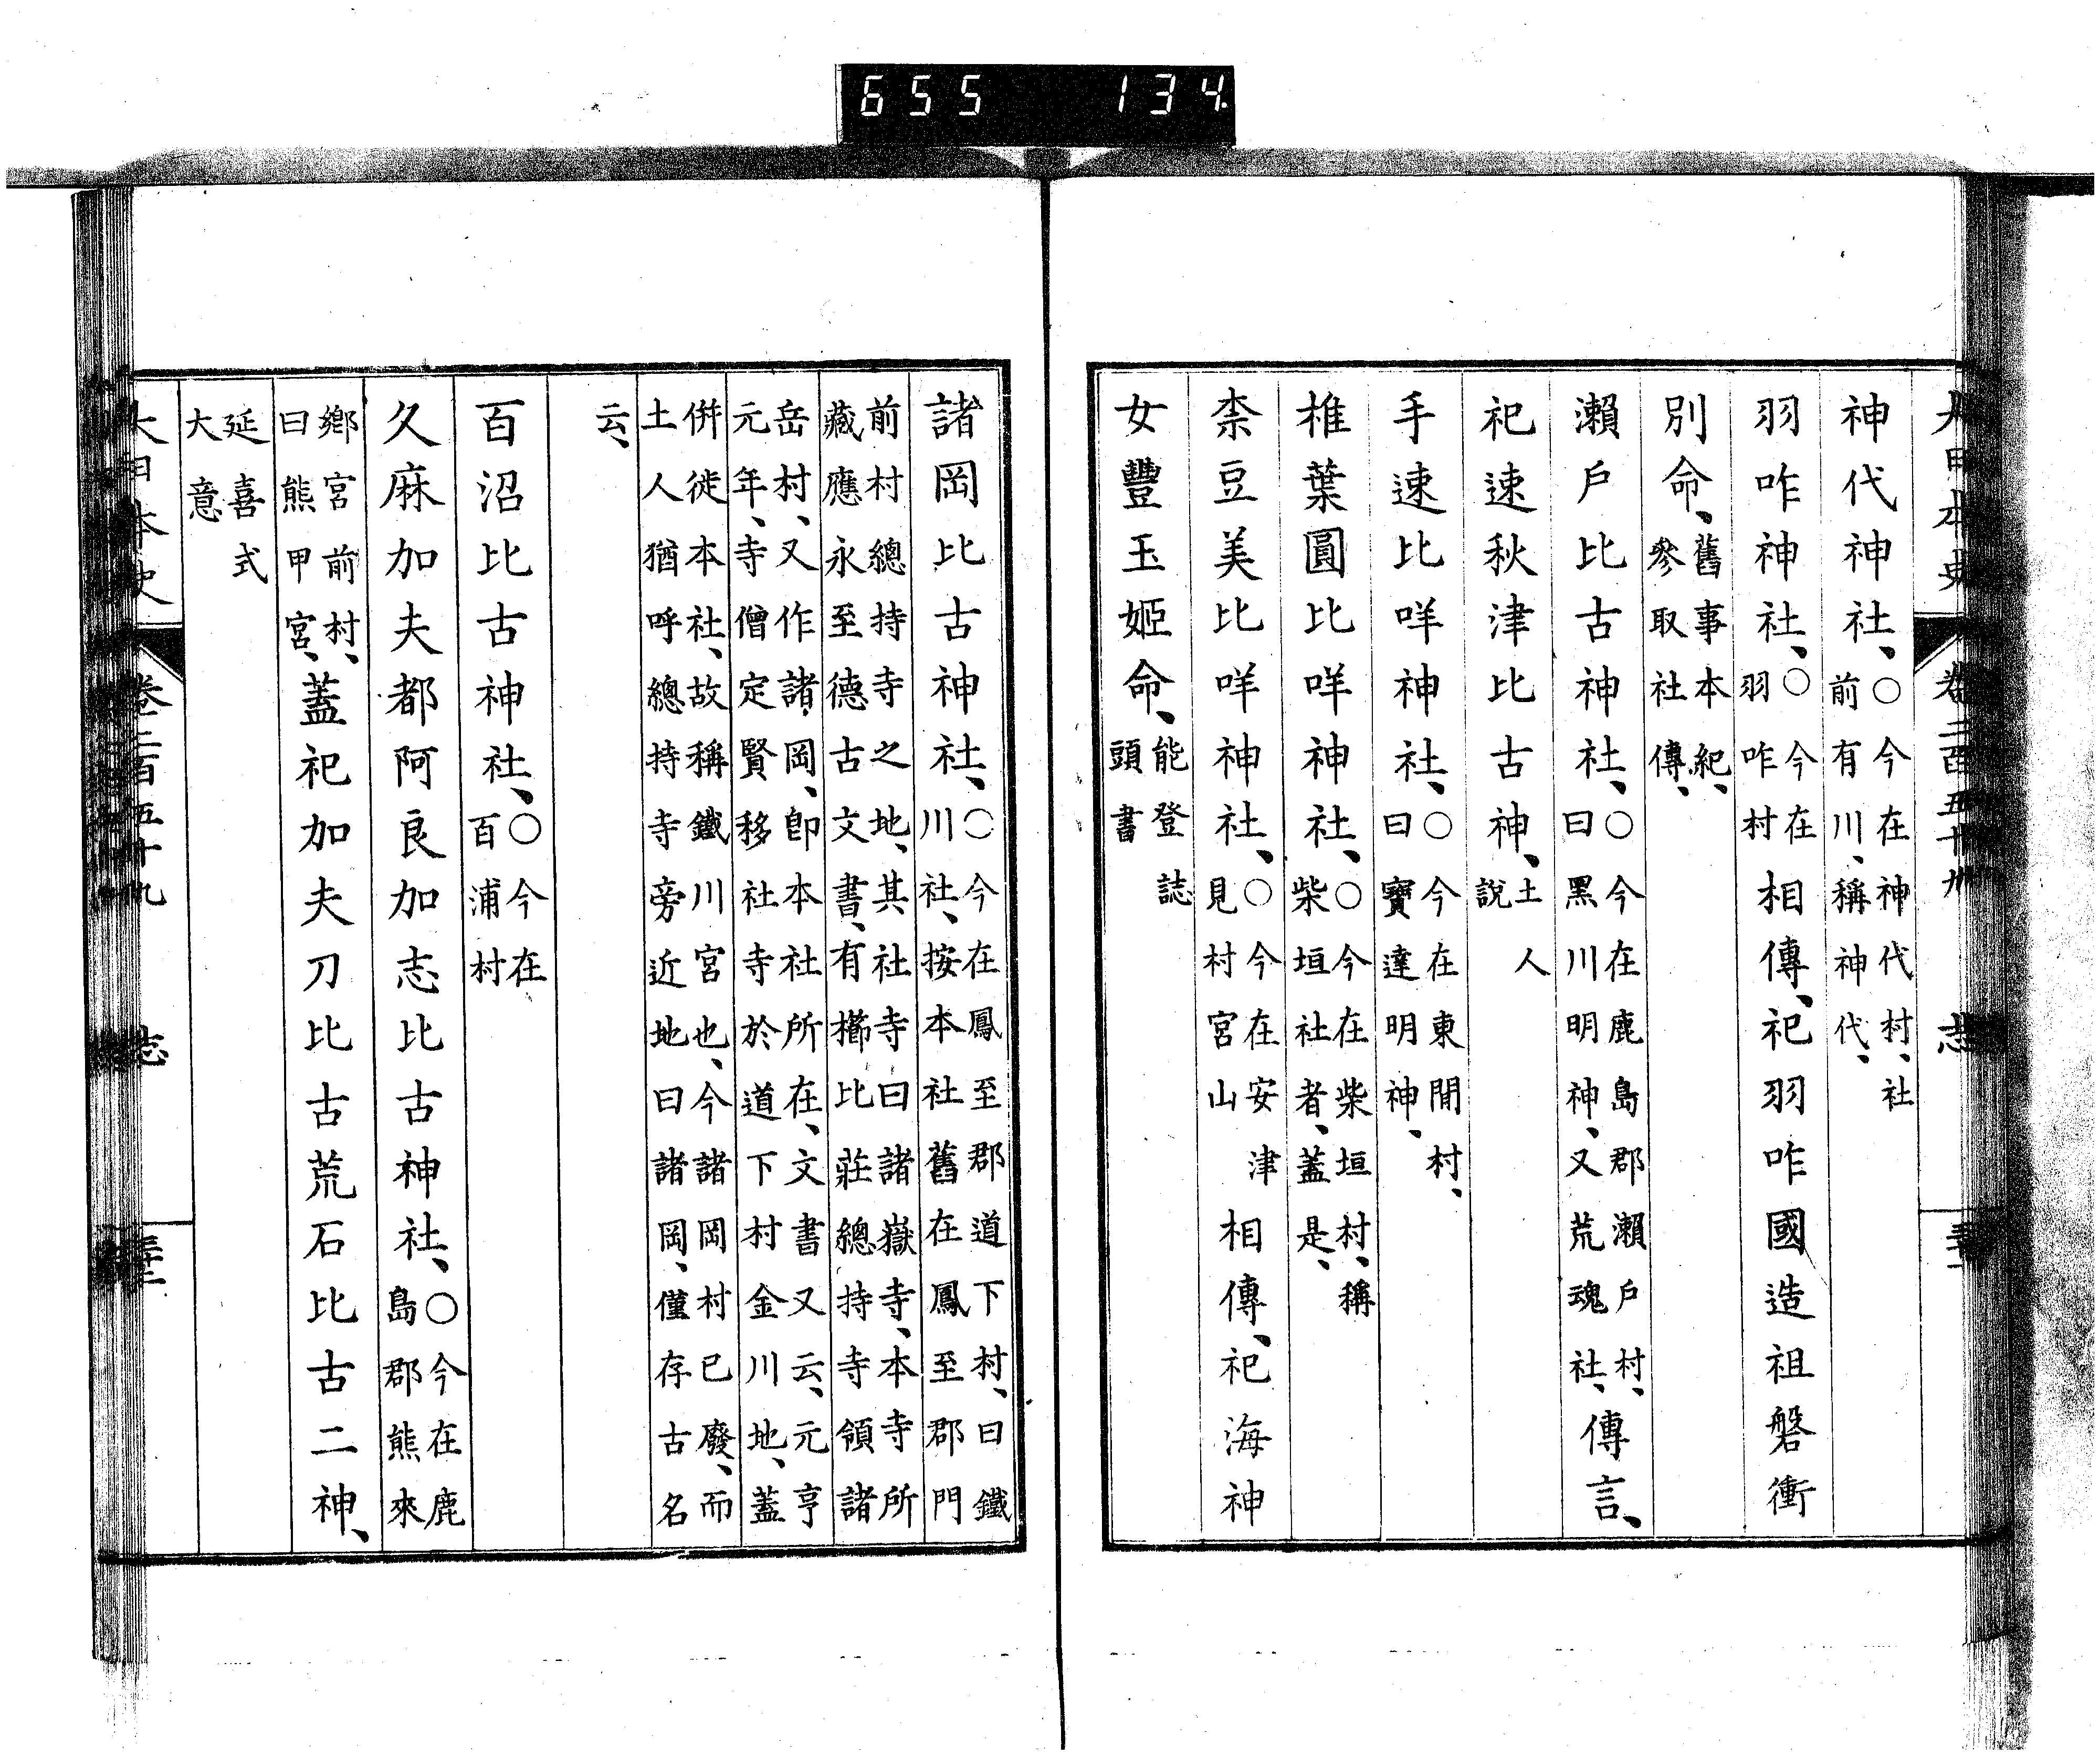 655 134
大日本史 卷二百五十九 志
神代神社、○今在神代村、社前有川、稱神代、
羽咋神社、○今在羽咋村相傳、祀羽咋國造祖磐衝
別命、舊事本紀、參取社傳、
瀨戶比古神社、○今在鹿島郡瀨戶村、曰黑川明神、又荒魂社、傳言、
祀速秋津比古神、土人說
手速比咩神社、○今在東閒村、曰寶達明神、
椎葉圓比咩神社、○今在柴垣村、稱柴垣社者、蓋是、
柰豆美比咩神社、○今在安津見村宮山相傳、祀海神
女豐玉姬命、能登誌頭書
諸岡比古神社、○今在鳳至郡道下村、曰鐵川社、按本社舊在鳳至郡門
前村總持寺之地、其社寺曰諸嶽寺、本寺所藏應永至德古文書、有櫛比莊總持寺領諸
岳村、又作諸岡、卽本社所在、文書又云、元亨元年、寺僧定賢移社寺於道下村金川地、蓋
併徙本社、故稱鐵川宮也、今諸岡村已廢、而土人猶呼總持寺旁近地曰諸岡、僅存古名
云、
百沼比古神社、○今在百浦村
久麻加夫都阿良加志比古神社、○今在鹿島郡熊來
鄉宮前村、曰熊甲宮、蓋祀加夫刀比古荒石比古二神、
延喜式大意
大日本史 卷二百五十九 志